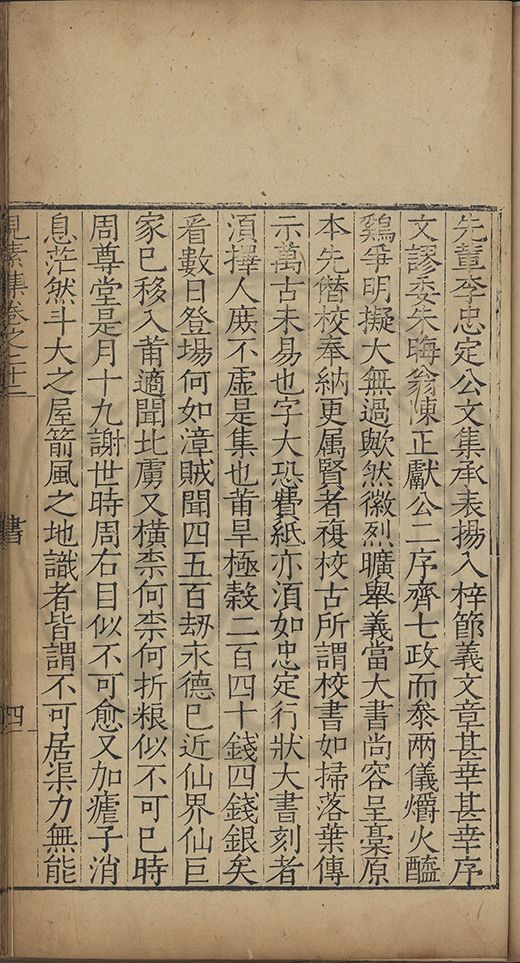 先輩李忠定公文集承表揚入梓節義文章甚幸甚幸序
文謬委朱晦翁陳正獻公二序齊七政而叅兩儀爝火醯
鷄爭明擬大無過歟然徽烈曠舉義當大書尚容呈藁原
本先僭校奉納更属賢者複校古所謂校書如掃落葉傳
示萬古未易也字大恐費紙亦湏如忠定行狀大書刻者
湏擇人庶不虛是集也莆旱極穀二百四十錢四錢銀矣
看數日登場何如漳賊聞四五百刼永德已近仙界仙巨
家已移入莆適聞北虜又橫柰何柰何折粮似不可已時
周尊堂是月十九謝世時周右目似不可愈又加瘧子消
息茫然斗大之屋箭風之地識者皆謂不可居渠力無能
見素集卷之二十二
書
四